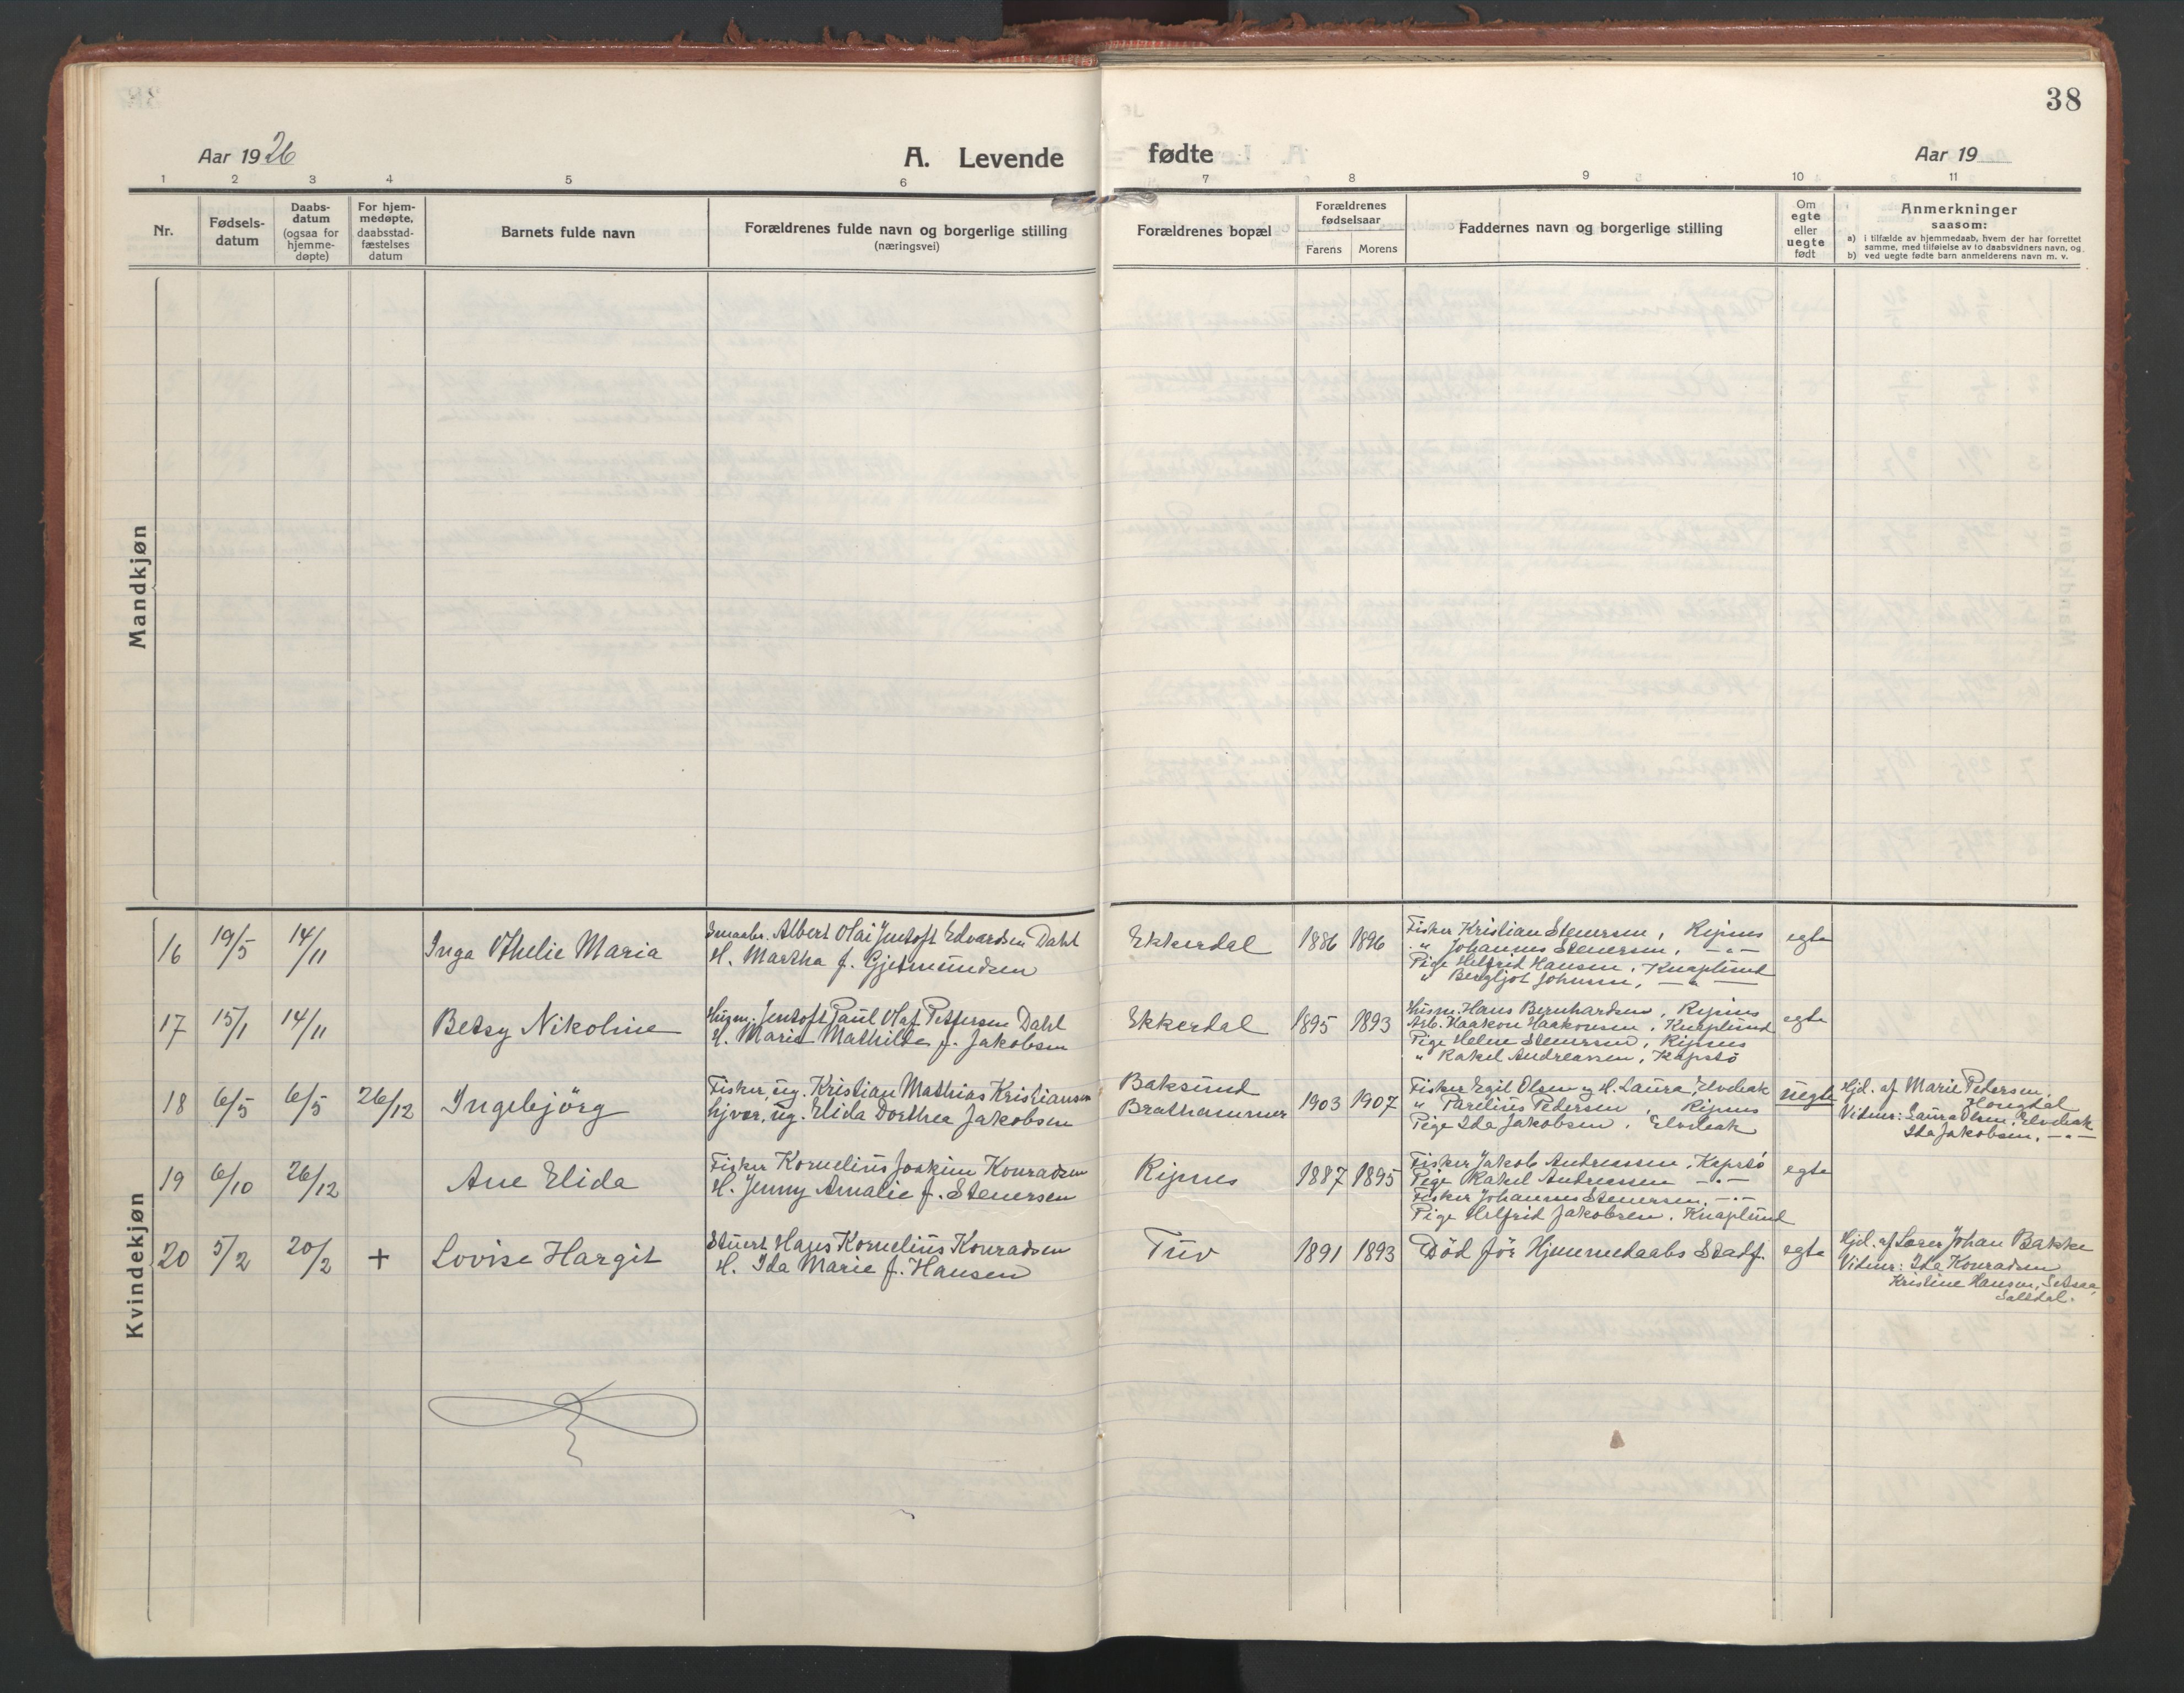 38
Aar 1926
A. Levende fødte
Aar 19
1 2 3 4 5 6 7 8 9 10 11
Nr.
Fødsels-
datum
Daabs-
datum
(ogsaa for
hjemme-
døpte)
For hjem-
medøpte,
daabsstad-
fæstelses
datum
Barnets fulde navn
Forældrenes fulde navn og borgerlige stilling
(næringsvei)
Forældrenes bopæl
Forældrenes
fødselsaar
Farens Morens
Faddernes navn og borgerlige stilling
Om
egte
eller
uegte
født
Anmerkninger
saasom:
a) i tilfælde av hjemmedaab, hvem der har forrettet
samme, med tilføielse av to daabsvidners navn, og
b) ved uegte fødte barn anmelderens navn m. v.
Mandkjøn
Kvindekjøn
16 19/5 14/11 Inga Othelie Maria
Smaabr. Albert Olai Jentoft Edvardsen Dahl
H. Martha f. Gjetmundsen
Ekkerdal 1886 1896
Fisker Kristian Stenersen, Ripnes
" Johannes Stenersen, -"-
Pige Helfrid Hansen, Knaplund
" Bergljot Johnsen, -"-
egte
17 15/1 14/11 Betsy Nikoline
Husm. Jentoft Paul Olaf Pettersen Dahl
H. Maria Mathilde f. Jakobsen
Ekkerdal 1895 1893
Husm. Hans Bernhardsen, Ripnes
Arb. Haakon Haakonsen, Knaplund
Pige Helene Stenersen, Ripnes
" Rakel Andreassen, Kapstø
egte
18 6/5 6/5 26/12 Ingebjörg
Fisker, ug. Kristian Mathias Kristiansen
hjvær. ug. Elida Dorthea Jakobsen
Baksund
Brathammer
1903 1907
Fisker Egil Olsen og H. Laura, Elvebak
" Parelius Pedersen, Ripnes
Pige Ida Jakobsen, Elvebak
uegte
Hjd. af Marie Petersen,
Hongdal
Vidner: Laura Olsen, Elvebak
Ida Jakobsen, -"-
19 6/10 26/12 Ane Elida
Fisker Kornelius Joakim Konradsen
H. Jenny Amalie f. Stenersen
Ripnes 1887 1895
Fisker Jakob Andreassen, Kapstø
Pige Rakel Andreassen -"-
Fisker Johannes Stenersen, -"-
Pige Helfrid Jakobsen, Knaplund
egte
20 5/2 20/2 + Lovise Hargit
Stuert Hans Kornelius Konradsen
H. Ida Marie f. Hansen
Tuv 1891 1893
Död för Hjemmedaabs Stadf.
egte
Hjd. af Lærer Johan Bakke
Vidner: Ida Konradsen
Kristine Hansen, Setsaa,
Saltdal.